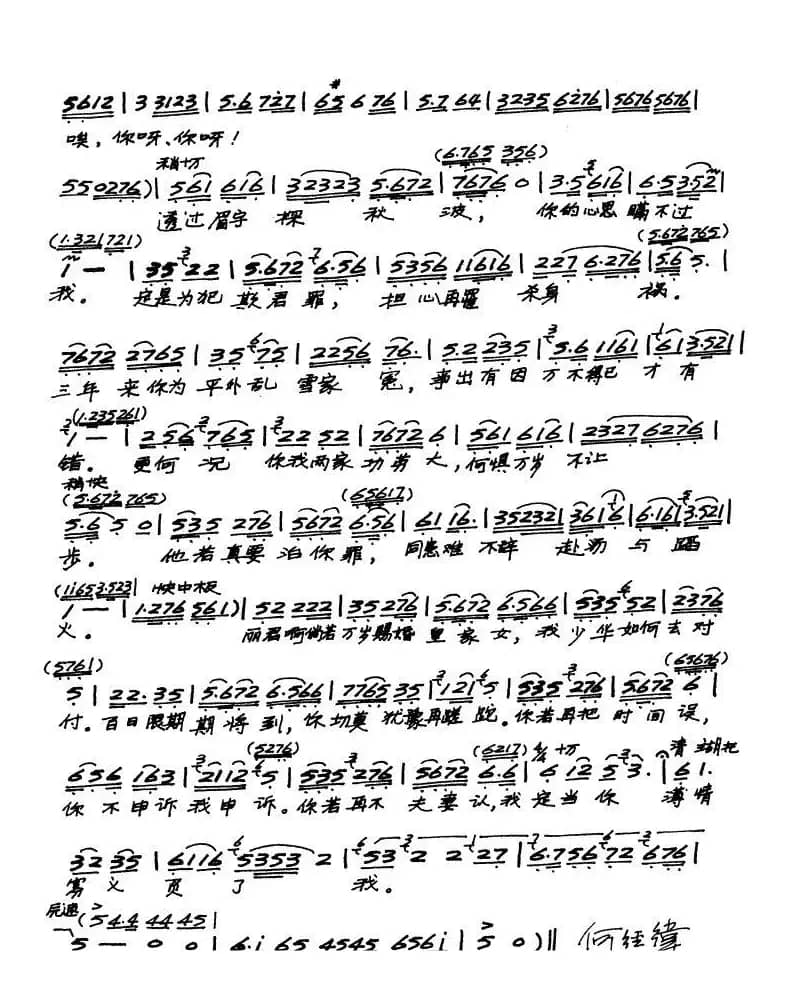 5612 | 3 3123 | 5.6 727 | 65 6 76 | 5.7 64 | 3235 6276 | 5676 5676 |
唉，你呀、你呀！
稍切 (6.765 356)
550276) | 561 616 | 32323 5.672 | 7676 0 | 3.5 616 | 6.5 3.52 |
透过眉宇 探 秋 波， 你的心思 瞒不过
(1.321 721) (5.672 765)
1 — | 35 22 | 5.672 6.56 | 5356 11616 | 227 6.276 | 5.6 5. |
我。 定是为犯 欺君罪， 担心再罹 杀身 祸。
7672 2765 | 35 75 | 2256 76. | 5.2 235 | 5.6 1161 | 61 3.521 |
三年 来你为 平外乱 雪家 冤， 事出有因 万不得已 才有
(1.235 261)
1 — | 256 765 | 22 52 | 7672 6 | 561 616 | 2327 6276 |
错。 更何 况 你我两家 功劳 大，何惧万岁 不让
稍快
(5.672 765) (65617)
5.6 5 0 | 535 276 | 5672 6.56 | 61 16. | 35232 | 3616 | 6.161 3.521 |
步。 他若真要 治你罪， 同患难 不辞 赴汤 与 蹈
(1165 3.523 | 快中板
1 — | 1.276 561) | 52 222 | 35 276 | 5.672 6.566 | 535 52 | 2376 |
火。 丽君啊倘若 万岁赐婚 皇家女，我少华如何去对
(5761) (65676)
5 | 22. 35 | 5.672 6.566 | 7765 35 | 121 5 | 535 276 | 5.672 6 |
付。百日限期 期将到，你切莫 犹豫再蹉 跎。你若再把 时间误，
(5276) (6217) 清板
656 163 | 2112 5 | 535 276 | 5672 6.6 | 6 12 5 3. | 6 1. |
你不申诉我申 诉。你若再不 夫妻认，我定当你 薄情
32 35 | 6116 5353 2 | 53 2 2 27 | 6.756 72 676 |
寡义 负 了 我。
(544 44 45 |
5 — 0 0 | 6.i 65 4545 656i | 5 0) ‖ 何经纬